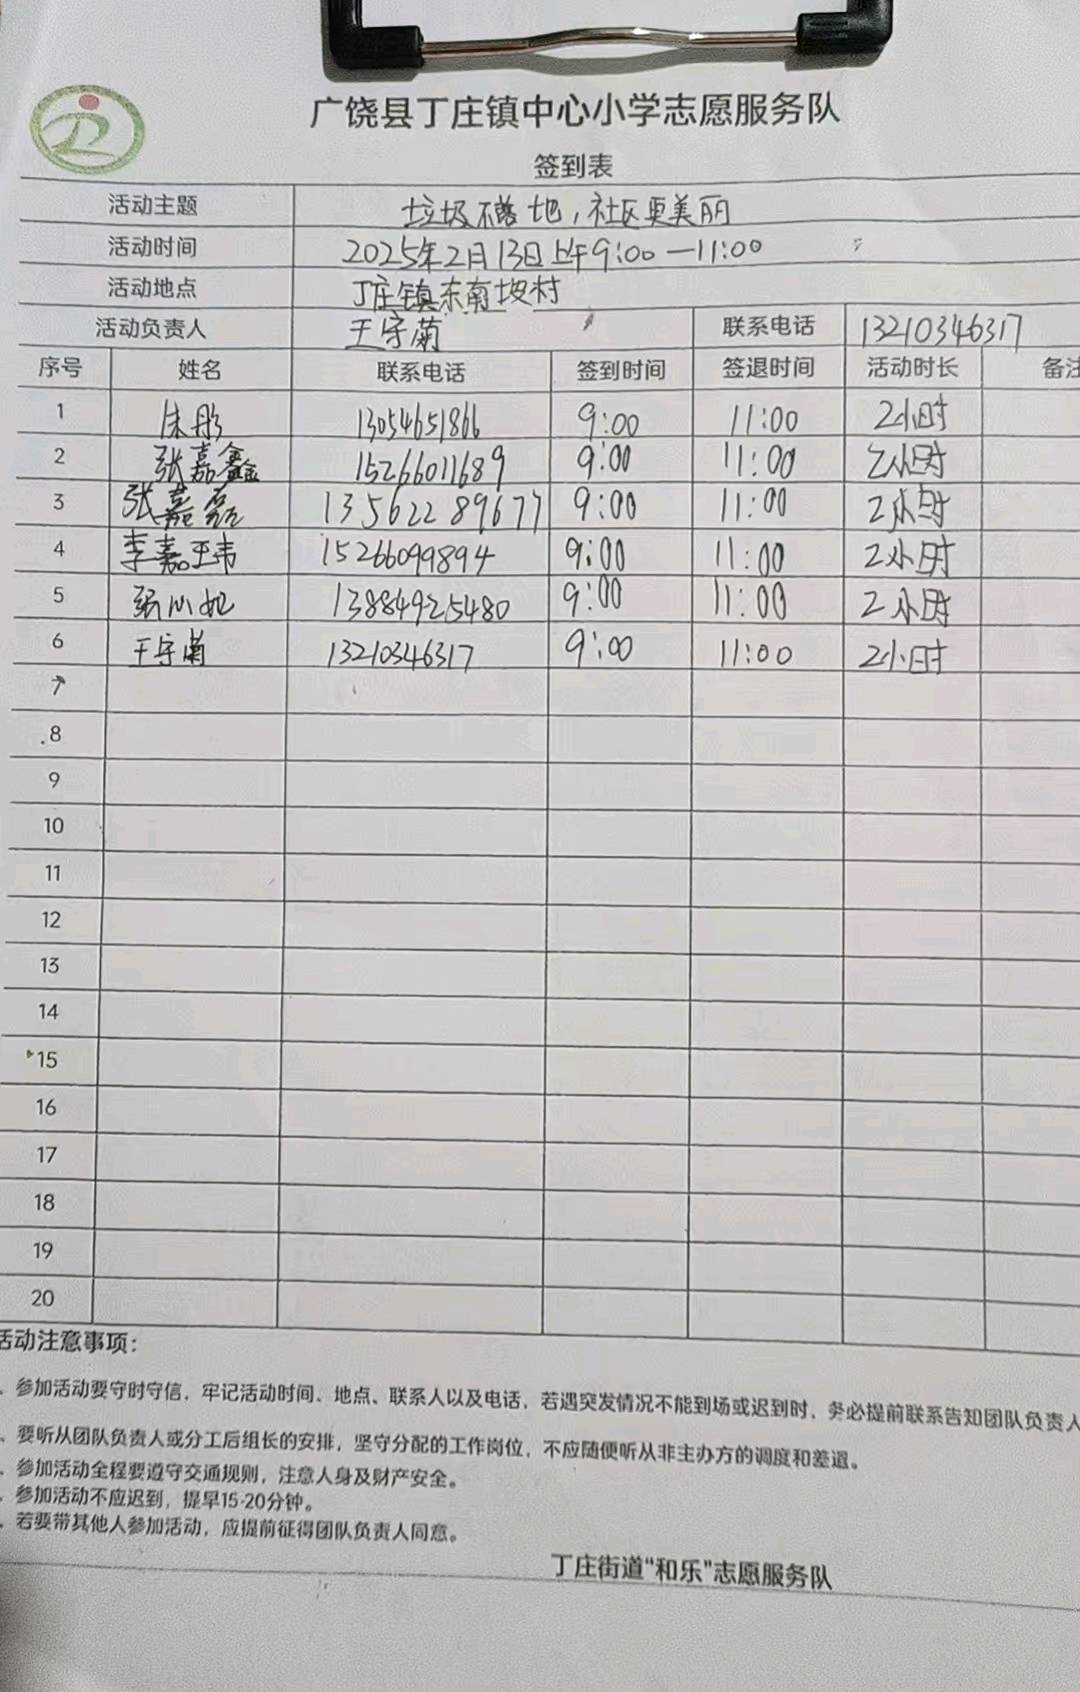 广饶县丁庄镇中心小学志愿服务队
签到表
活动主题 垃圾不落地，社区更美丽
活动时间 2025年2月13日上午9:00—11:00
活动地点 丁庄镇东南坡村
活动负责人 王守菊 联系电话 13210346317
序号 姓名 联系电话 签到时间 签退时间 活动时长 备注
1 朱彤 13054651866 9:00 11:00 2小时
2 张嘉鑫 15266011689 9:00 11:00 2小时
3 张嘉磊 13562289677 9:00 11:00 2小时
4 李嘉玮 15266099894 9:00 11:00 2小时
5 张心妃 13884925480 9:00 11:00 2小时
6 王守菊 13210346317 9:00 11:00 2小时
7
8
9
10
11
12
13
14
15
16
17
18
19
20
活动注意事项：
、参加活动要守时守信，牢记活动时间、地点、联系人以及电话，若遇突发情况不能到场或迟到时，务必提前联系告知团队负责人
、要听从团队负责人或分工后组长的安排，坚守分配的工作岗位，不应随便听从非主办方的调度和差遣。
、参加活动全程要遵守交通规则，注意人身及财产安全。
、参加活动不应迟到，提早15-20分钟。
、若要带其他人参加活动，应提前征得团队负责人同意。
丁庄街道“和乐”志愿服务队